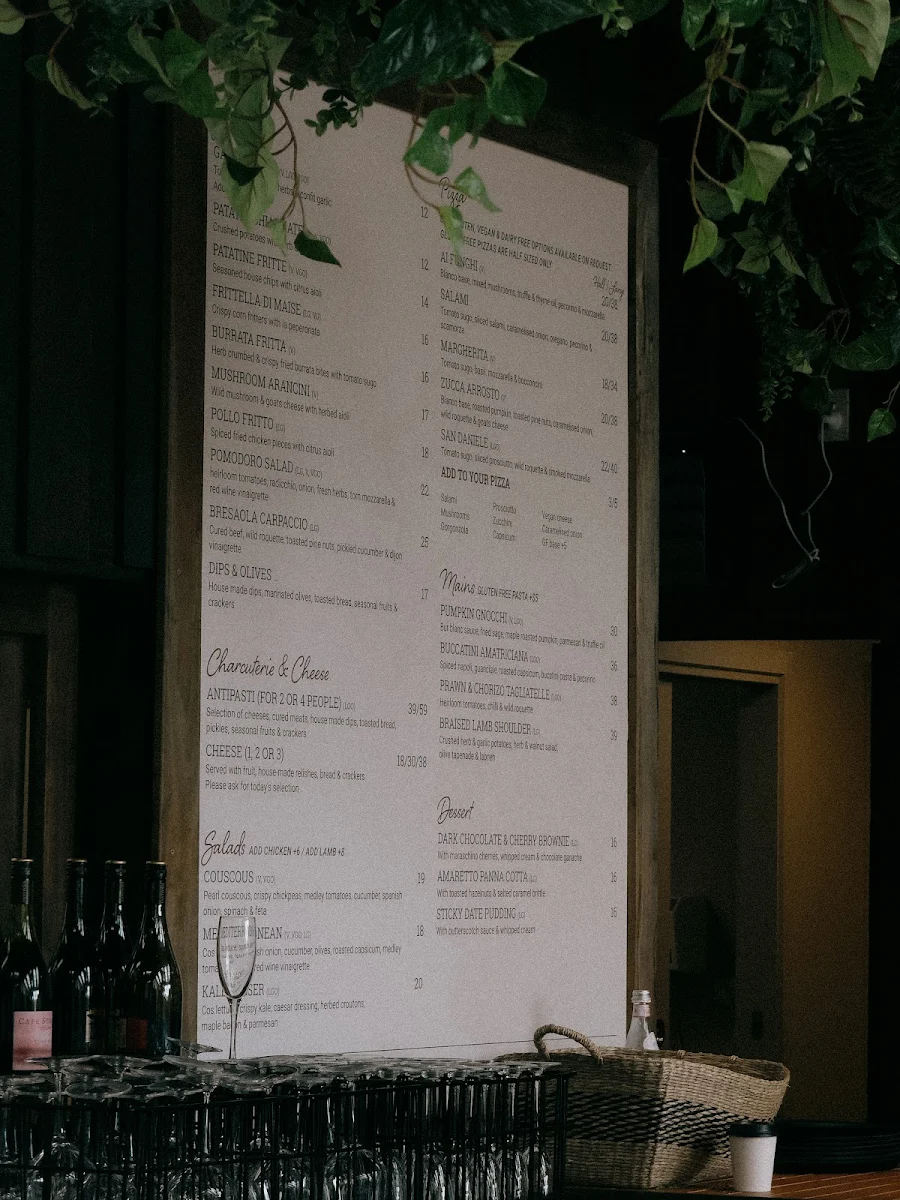 GA
herbs, confit garlic
PATA
12
Crushed potatoes
PATATINE FRITTE (V, VGO) 12
Seasoned house chips with citrus aioli
FRITTELLA DI MAISE (LG, V) 14
Crispy corn fritters with la peperonata
BURRATA FRITTA (V) 16
Herb crumbed & crispy fried burrata bites with tomato sugo
MUSHROOM ARANCINI (V) 16
Wild mushroom & goats cheese with herbed aioli
POLLO FRITTO (LG) 17
Spiced fried chicken pieces with citrus aioli
POMODORO SALAD (LG, V, VGO) 18
heirloom tomatoes, radicchio, onion, fresh herbs, torn mozzarella &
red wine vinaigrette 22
BRESAOLA CARPACCIO (LG)
Cured beef, wild roquette, toasted pine nuts, pickled cucumber & dijon
vinaigrette 25
DIPS & OLIVES
House made dips, marinated olives, toasted bread, seasonal fruits &
crackers 17
Charcuterie & Cheese
ANTIPASTI (FOR 2 OR 4 PEOPLE) (LGO) 39/59
Selection of cheeses, cured meats, house made dips, toasted bread,
pickles, seasonal fruits & crackers
CHEESE (1, 2 OR 3) 18/30/38
Served with fruit, house made relishes, bread & crackers
Please ask for today's selection
Salads ADD CHICKEN +6 / ADD LAMB +8
COUSCOUS (V, VGO) 19
Pearl couscous, crispy chickpeas, medley tomatoes, cucumber, spanish
onion, spinach & feta
MEDITERRANEAN (V, VGO, LG) 18
Cos onion, cucumber, olives, roasted capsicum, medley
red wine vinaigrette
KALE 20
Cos lettuce crispy kale, caesar dressing, herbed croutons,
maple bacon & parmesan
Pizza
GLUTEN, VEGAN & DAIRY FREE OPTIONS AVAILABLE ON REQUEST.
GLUTEN FREE PIZZAS ARE HALF SIZED ONLY
AI FUNGHI (V) 20/38
Bianco base, mixed mushrooms, truffle & thyme oil, pecorino & mozzarella
SALAMI 20/38
Tomato sugo, sliced salami, caramelised onion, oregano, pecorino &
scamorza
MARGHERITA (V) 18/34
Tomato sugo, basil, mozzarella & bocconcini
ZUCCA ARROSTO (V) 20/38
Bianco base, roasted pumpkin, toasted pine nuts, caramelised onion,
wild roquette & goats cheese
SAN DANIELE (LGO) 22/40
Tomato sugo, sliced prosciutto, wild roquette & smoked mozzarella
ADD TO YOUR PIZZA 3/5
Salami Prosciutto Vegan cheese
Mushrooms Zucchini Caramelised onion
Gorgonzola Capsicum GF base +5
Mains GLUTEN FREE PASTA +$5
PUMPKIN GNOCCHI (V, LGO) 30
Bur blanc sauce, fried sage, maple roasted pumpkin, parmesan & truffle oil
BUCCATINI AMATRICIANA (LGO) 36
Spiced napoli, guanciale, roasted capsicum, bucatini pasta & pecorino
PRAWN & CHORIZO TAGLIATELLE (LGO) 38
Heirloom tomatoes, chilli & wild roquette
BRAISED LAMB SHOULDER (LG) 39
Crushed herb & garlic potatoes, herb & walnut salad,
olive tapenade & labneh
Dessert
DARK CHOCOLATE & CHERRY BROWNIE (LG) 16
With maraschino cherries, whipped cream & chocolate ganache
AMARETTO PANNA COTTA (LG) 16
With toasted hazelnuts & salted caramel brittle
STICKY DATE PUDDING (LG) 16
With butterscotch sauce & whipped cream